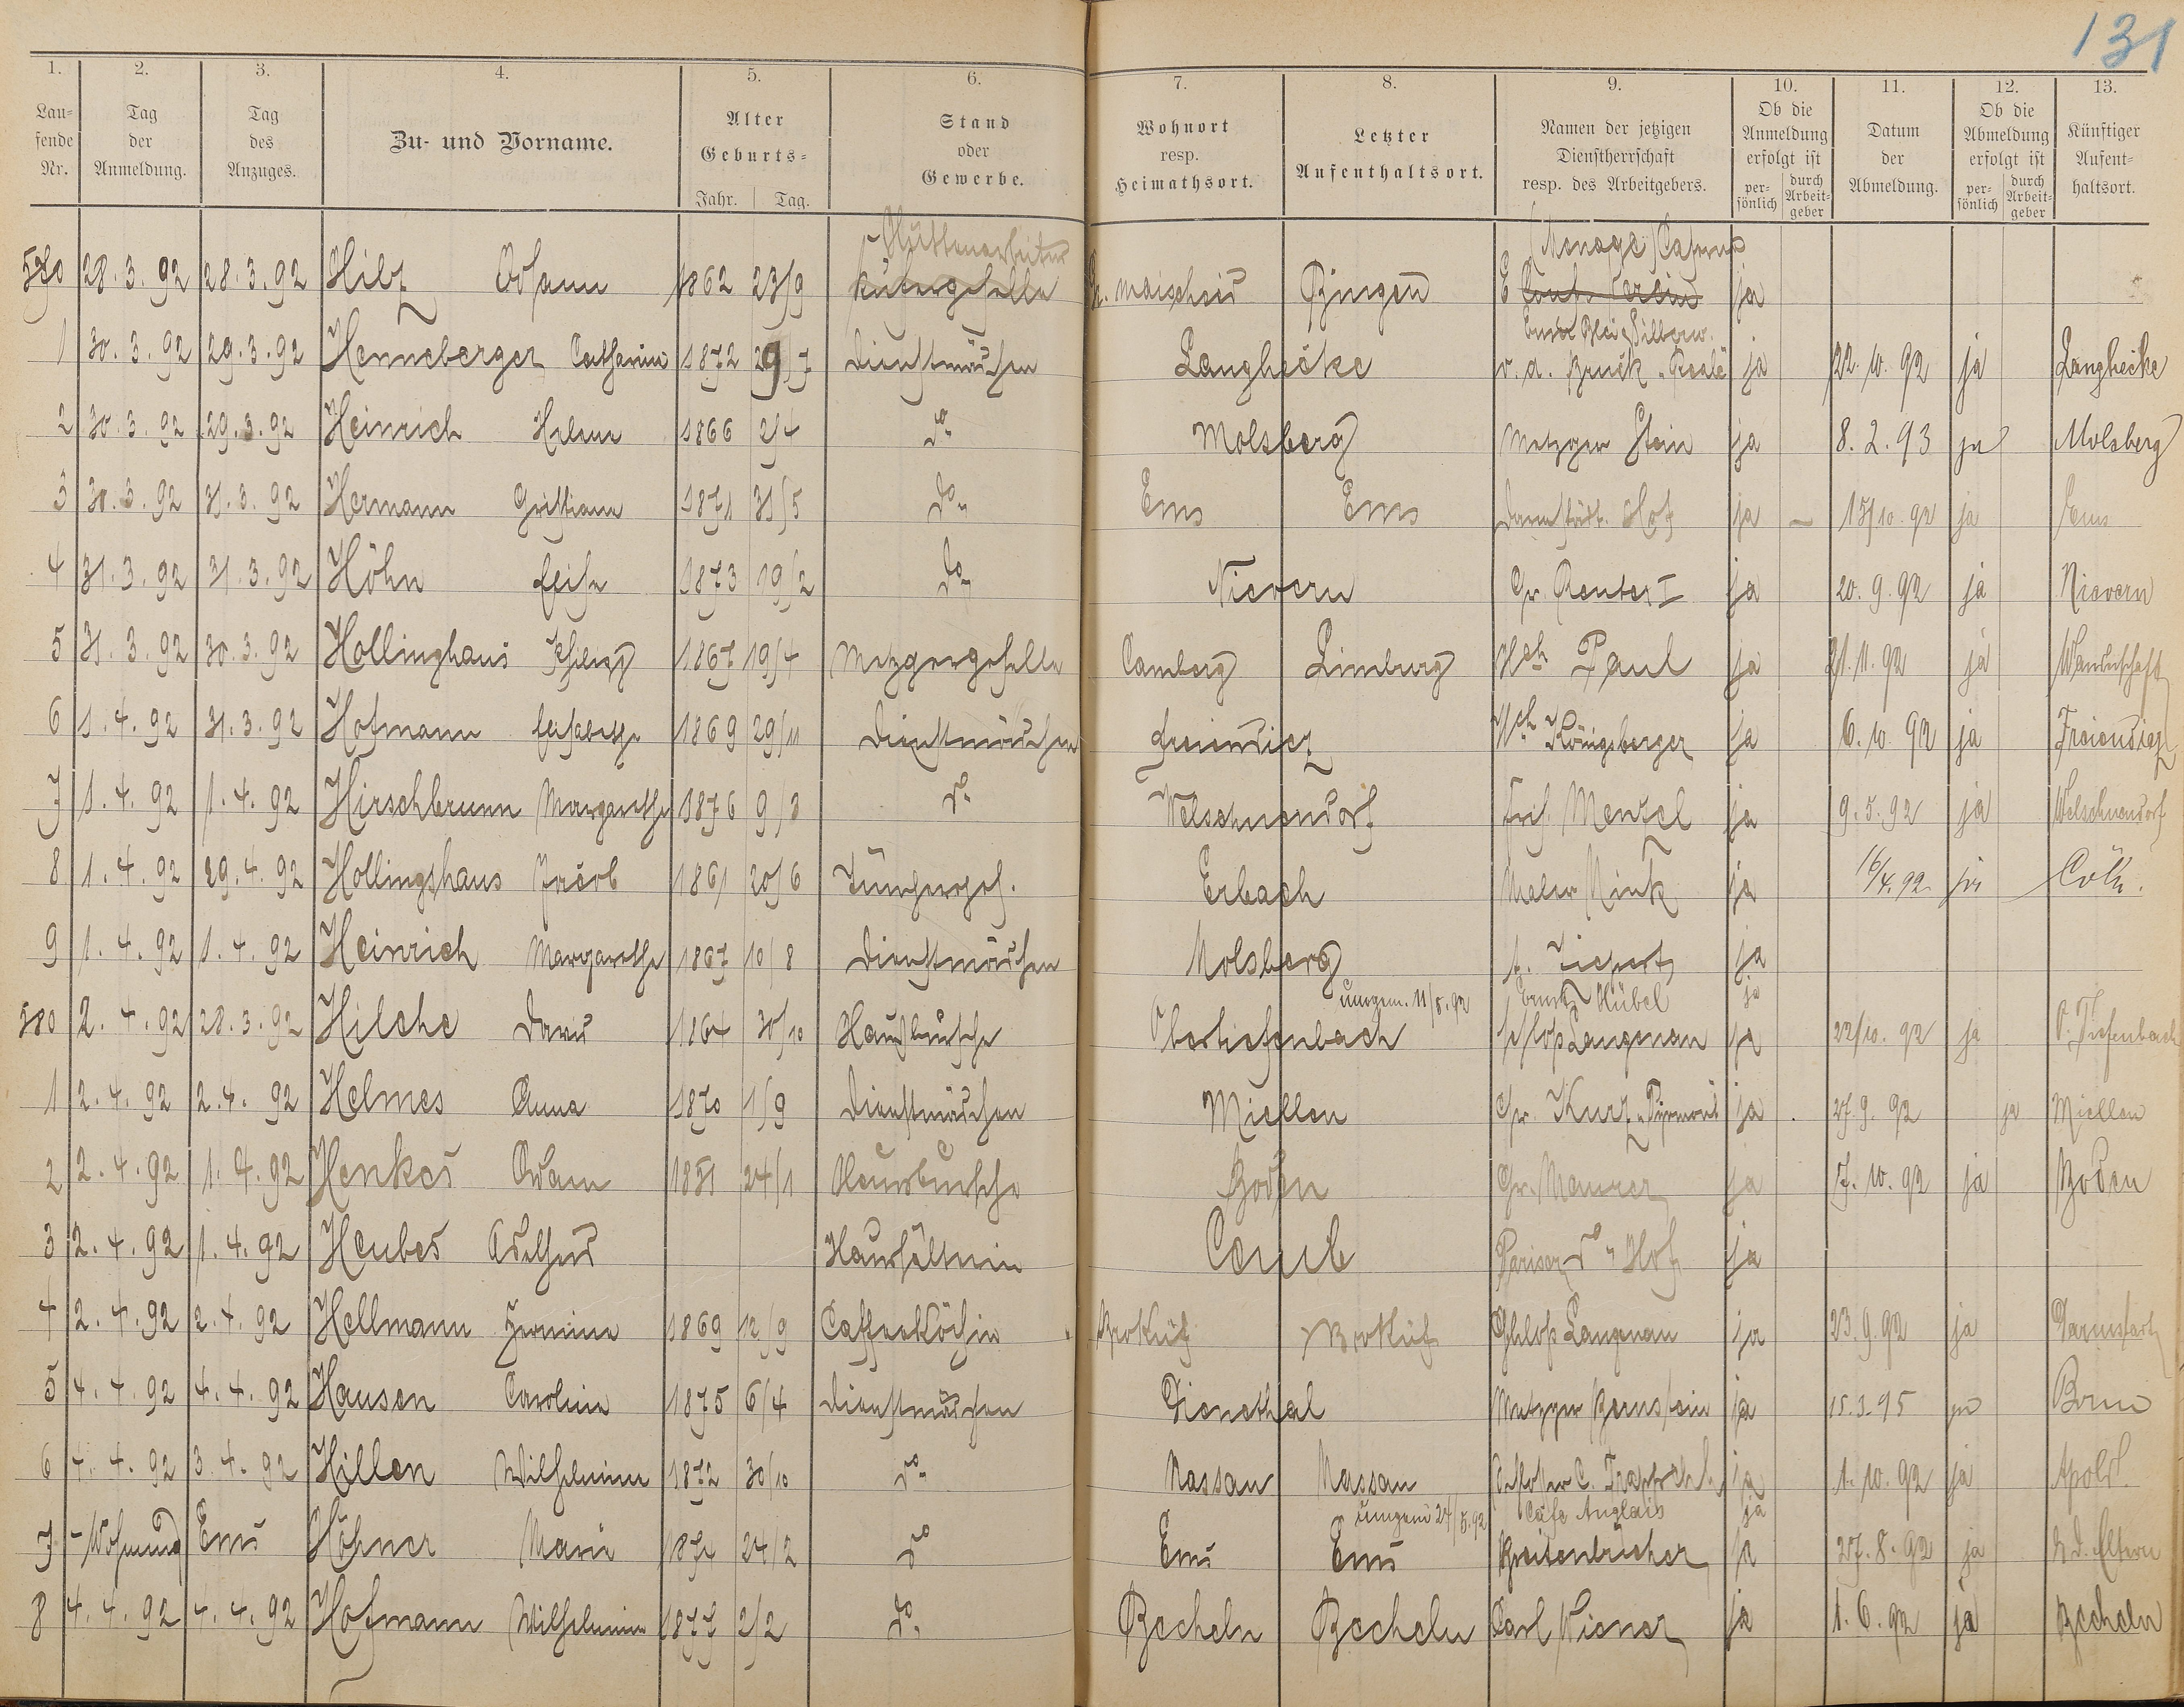 131
1. 2. 3. 4. 5. 6. 7. 8. 9. 10. 11. 12. 13.
Lau=fende Nr. Tag der Anmeldung. Tag des Anzuges. Zu- und Vorname. Alter Geburts= Jahr. Tag. Stand oder Gewerbe. Wohnort resp. Heimathsort. Letzter Aufenthaltsort. Namen der jetzigen Dienstherrschaft resp. des Arbeitgebers. Ob die Anmeldung erfolgt ist per=sönlich durch Arbeit=geber Datum der Abmeldung. Ob die Abmeldung erfolgt ist per=sönlich durch Arbeit=geber Künftiger Aufent=haltsort.
Hüttenarbeiter (Menage)
28.3.92 28.3.92 Hilz 1862 23/9 Küfergeselle Bingen ja
1 30.3.92 29.3.92 Henneberger Catharine 1872 29/7 Dienstmädchen Langhecke v. d. Bruck ja 22.10.92 ja Langhecke
2 30.3.92 29.3.92 Heinrich Helene 1866 2/4 do Molsberg Metzger Stein ja 8.2.93 ja Molsberg
3 30.3.92 31.3.92 Hermann 1871 31/5 do Ems Ems Darmstädt. Hof ja 15/10.92 ja Ems
4 31.3.92 31.3.92 Höhn 1873 19/2 do Nievern ja 20.9.92 ja Nievern
5 31.3.92 30.3.92 Hollinghaus 1867 19/4 Metzgergeselle Camberg Limburg Paul ja 21.11.92 ja Wanderschaft
6 1.4.92 31.3.92 Hofmann Elisabethe 1869 29/11 Dienstmädchen Freiendiez Königsberger ja 6.10.92 ja Freiendiez
7 1.4.92 1.4.92 Hirschbrunn Margarethe 1876 9/3 do Welschneudorf Mensel ja 9.5.92 ja Welschneudorf
8 1.4.92 29.4.92 Hollingshaus Jacob 1861 20/6 Tünchergef. Erbach Maler Mink ja 16/4.92 ja Cöln.
9 1.4.92 1.4.92 Heinrich Margarethe 1867 10/8 Dienstmädchen Molsberg ja
umgem. 11/5.92 Hübel ja
580 2.4.92 28.3.92 Hilche 1864 30/10 Hausbursche Obertiefenbach Schloß Langenau ja 22/10.92 ja O. Tiefenbach
1 2.4.92 2.4.92 Helmes Anna 1870 1/9 Dienstmädchen Miellen Kurz ja 27.9.92 ja Miellen
2 2.4.92 1.4.92 Henkes Adam 24/1 Hausbursche Boden Gr. Maurer ja 7.10.92 ja Boden
3 2.4.92 1.4.92 Heubes Adelheid Haushälterin Caub Pariser Hof ja
4 2.4.92 2.4.92 Hellmann Hermine 1869 12/9 Caffeeköchin Schloß Langenau ja 23.9.92 ja Darmstadt
5 4.4.92 4.4.92 Hausen Caroline 1875 6/4 Dienstmädchen Dienethal Metzger Bernstein ja 15.3.95
6 4.4.92 3.4.92 Hillen Wilhelmine 1872 30/10 do Nassau Nassau ja 1.10.92 ja
umgem 24/5.92 Cafe Anglais ja
7 Wohnung Ems Höhner Marie 1874 24/2 do Ems Ems Breitenbücher ja 27.8.92 ja
8 4.4.92 4.4.92 Hofmann Wilhelmine 1877 2/2 do Becheln Becheln Carl Wiener ja 1.6.92 ja Becheln